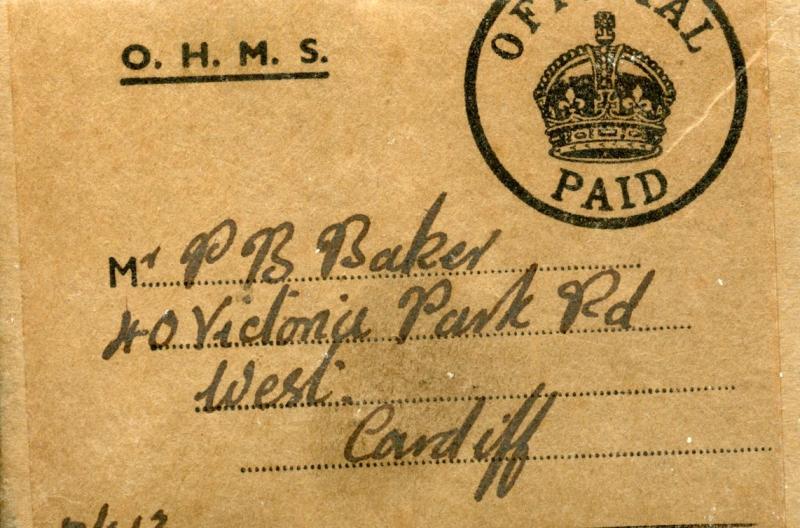 O. H. M. S.
OFFICIAL
PAID
Mr P B Baker
40 Victoria Park Rd
West.
Cardiff